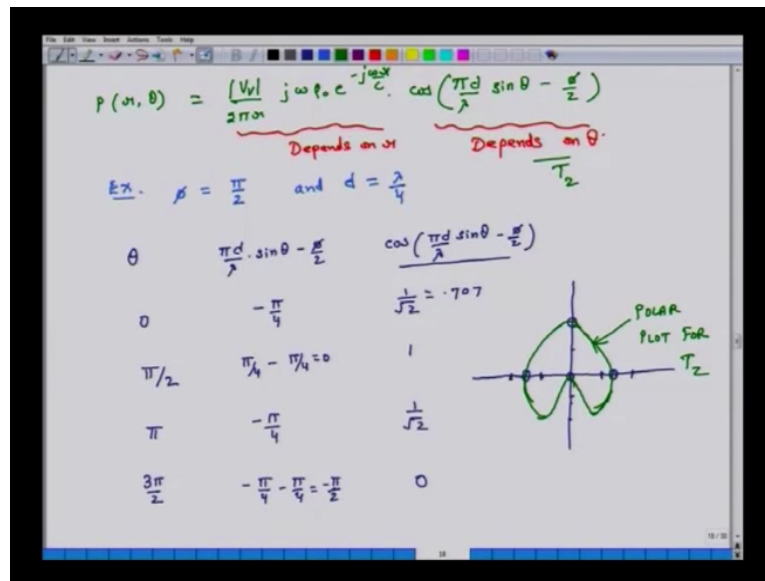 File Edit View Insert Actions Tools Help
p(r, θ) = |Vv|/2πr jωρ₀ e^(-jωr/c) . cos(πd/λ sin θ - ø/2)
Depends on r Depends on θ.
T₂
Ex. ø = π/2 and d = λ/4
θ πd/λ . sin θ - ø/2 cos(πd/λ sin θ - ø/2)
0 -π/4 1/√2 = .707
π/2 π/4 - π/4 = 0 1
π -π/4 1/√2
3π/2 -π/4 - π/4 = -π/2 0
POLAR
PLOT FOR
T₂
18 / 30
18